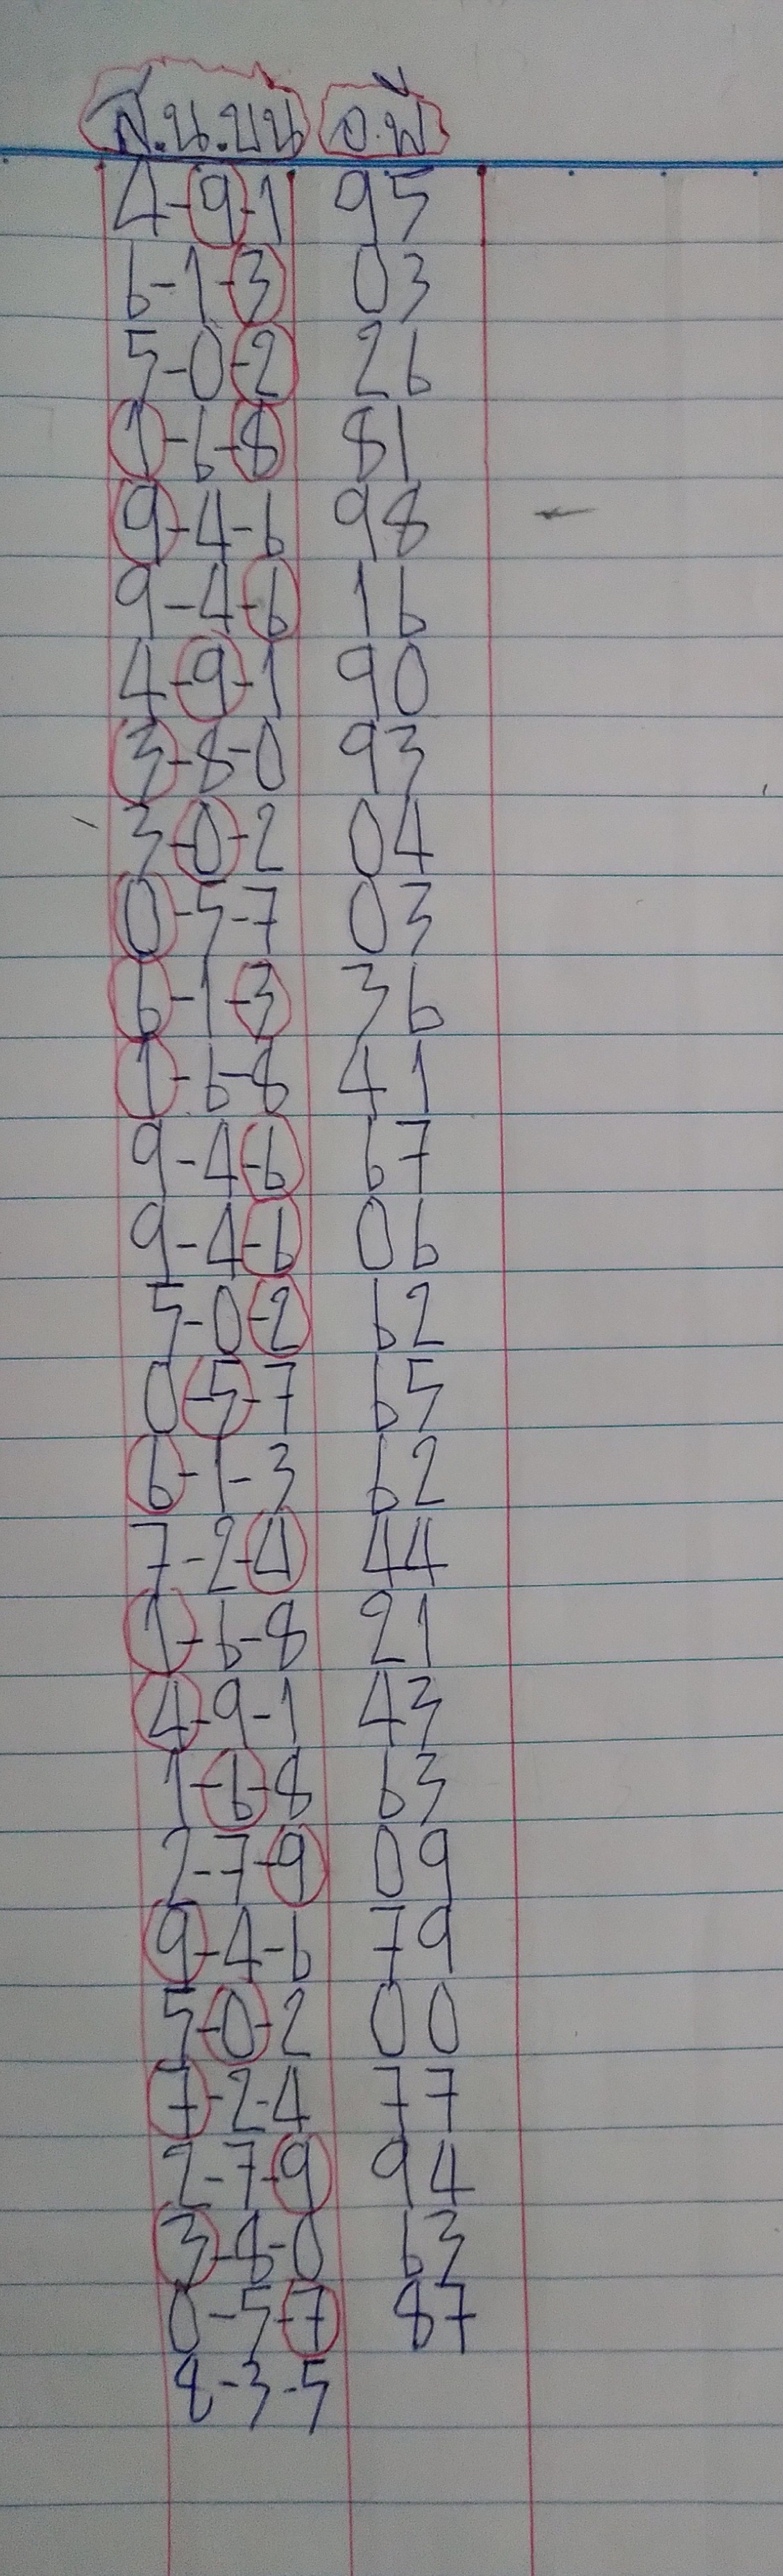 ส.น.บน อ.พี
4-9-1 95
6-1-3 03
5-0-2 26
1-6-8 81
9-4-6 98
9-4-6 16
4-9-1 90
3-8-0 93
3-0-2 04
0-5-7 03
6-1-3 36
1-6-8 41
9-4-6 67
9-4-6 06
5-0-2 62
0-5-7 65
6-1-3 62
7-2-4 44
1-6-8 21
4-9-1 43
1-6-8 63
2-7-9 09
9-4-6 79
5-0-2 00
7-2-4 77
2-7-9 94
3-8-0 63
0-5-7 87
8-3-5